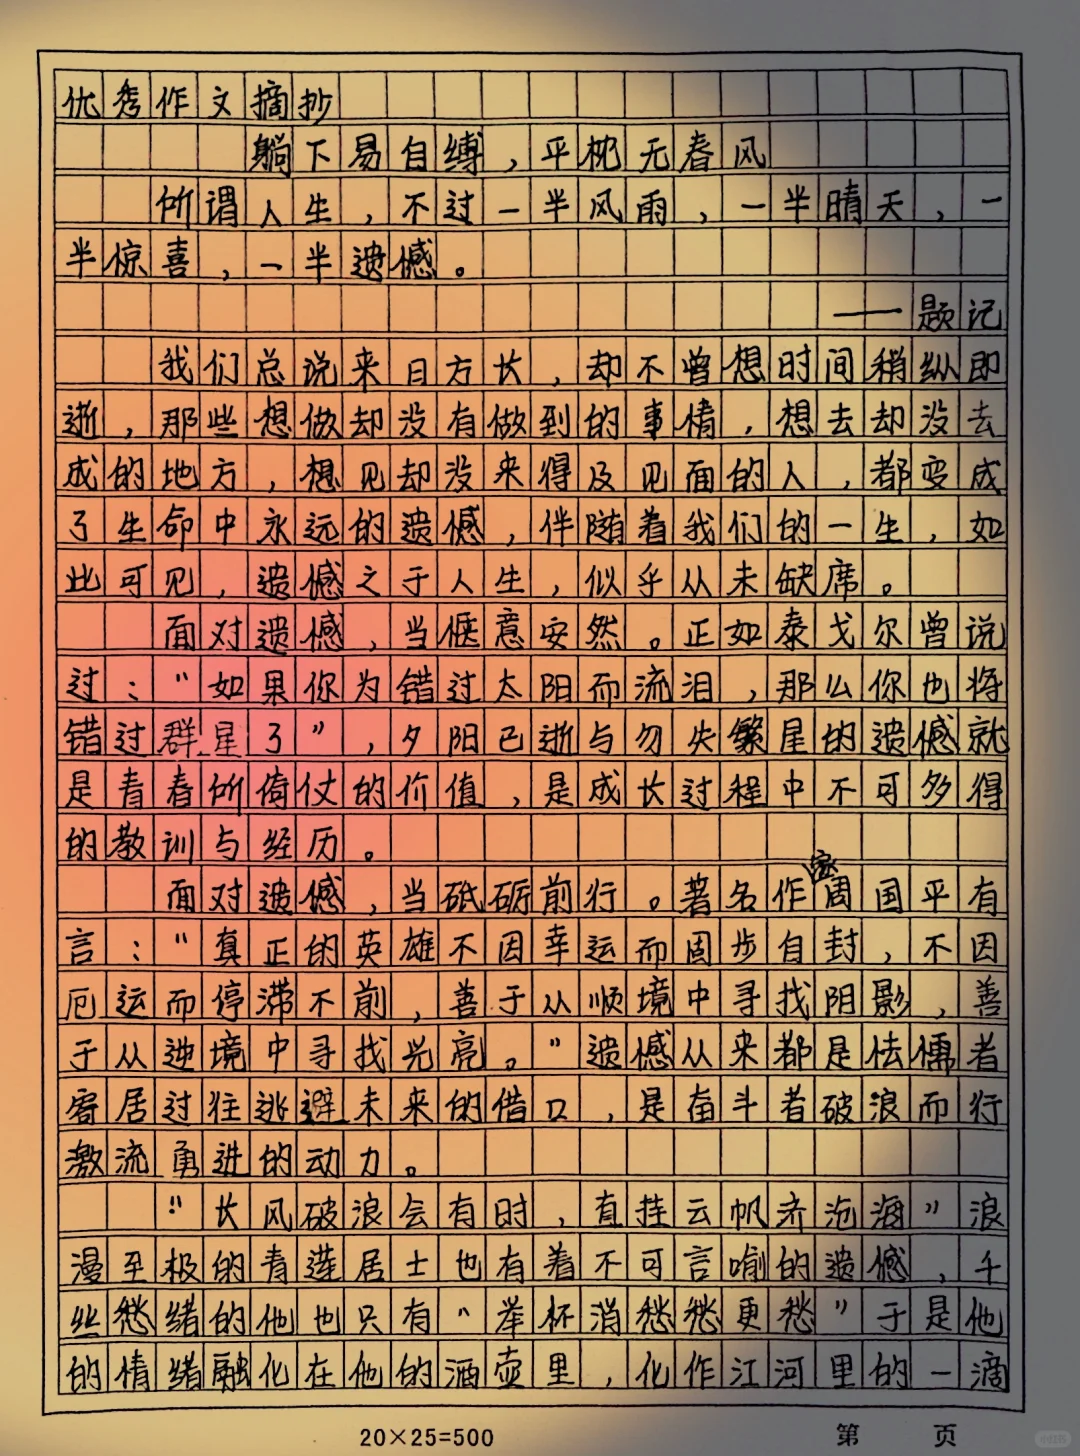 优秀作文摘抄
躺下易自缚，平枕无春风
所谓人生，不过一半风雨，一半晴天，一
半惊喜，一半遗憾。
——题记
我们总说来日方长，却不曾想时间稍纵即
逝，那些想做却没有做到的事情，想去却没去
成的地方，想见却没来得及见面的人，都变成
了生命中永远的遗憾，伴随着我们的一生，如
此可见，遗憾之于人生，似乎从未缺席。
面对遗憾，当惬意安然。正如泰戈尔曾说
过：“如果你为错过太阳而流泪，那么你也将
错过群星了”，夕阳已逝与勿失繁星的遗憾就
是青春所倚仗的价值，是成长过程中不可多得
的教训与经历。
面对遗憾，当砥砺前行。著名作家周国平有
言：“真正的英雄不因幸运而固步自封，不因
厄运而停滞不前，善于从顺境中寻找阴影，善
于从逆境中寻找光亮。”遗憾从来都是怯懦者
寄居过往逃避未来的借口，是奋斗者破浪而行
激流勇进的动力。
“长风破浪会有时，直挂云帆济沧海”浪
漫至极的青莲居士也有着不可言喻的遗憾，千
丝愁绪的他也只有“举杯消愁愁更愁”于是他
的情绪融化在他的酒壶里，化作江河里的一滴
20×25=500
第 页
小红书